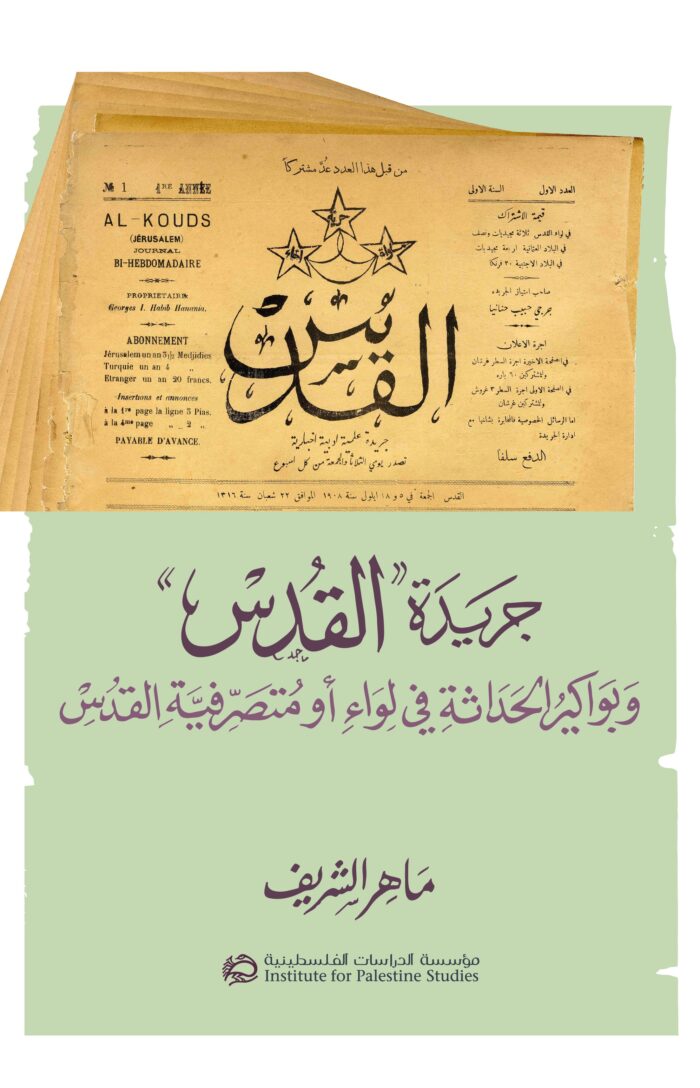 من قبل هذا العدد عُدَّ مشتركاً
№ 1 1RE ANNÉE
AL-KOUDS
(JÉRUSALEM)
JOURNAL
BI-HEBDOMADAIRE
PROPRIETAIRE
Georges I. Habib Hanania.
ABONNEMENT
Jérusalem un an 3½ Medjidies
Turquie un an 4 „
Etranger un an 20 francs.
Insertions et annonces
à la 1re page la ligne 3 Pias.
à la 4me page „ 2 „
PAYABLE D'AVANCE.
حرية
مساواة
اخاء
القدس
جريدة علمية ادبية اخبارية
تصدر يومي الثلاثا والجمعة من كل اسبوع
العدد الاول السنة الاولى
قيمة الاشتراك
في لواء القدس ثلاثة مجيديات ونصف
في البلاد العثمانية اربعة مجيديات
في البلاد الاجنبية ٢٠ فرنكا
صاحب امتياز الجريده
جرجي حبيب حنانيا
اجرة الاعلان
في الصفحة الاخيرة اجرة السطر غرشان
وللمشتركين ٦٠ باره
في الصفحة الاولى اجرة السطر ٣ غروش
وللمشتركين غرشان
اما الرسائل الخصوصية فالمخابرة بشانها مع
ادارة الجريدة
الدفع سلفا
القدس الجمعة في ٥ و ١٨ ايلول سنة ١٩٠٨ الموافق ٢٢ شعبان سنة ١٣١٦
جَريدَة "القُدسْ"
ماجد
وَبَوَاكيرُ الحَدَاثةِ في لِوَاءِ أو مُتصَرِّفيَّةِ القدُسْ
مَاهِر الشريف
مؤسسة الدراسات الفلسطينية
Institute for Palestine Studies